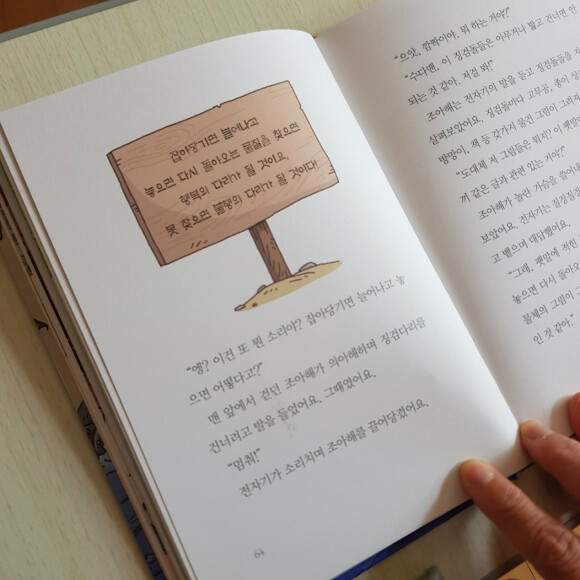 잡아당기면 늘어나고
놓으면 다시 돌아오는 물질을 찾으면
행복의 다리가 될 것이요,
못 찾으면 불행의 다리가 될 것이다!
“앵? 이건 또 뭔 소리야? 잡아당기면 늘어나고 놓
으면 어떻다고?”
맨 앞에서 걷던 조아해가 의아해하며 징검다리를
건너려고 발을 들었어요. 그때였어요.
“멈춰!”
전자기가 소리치며 조아해를 끌어당겼어요.
64
“으앗, 깜짝이야. 뭐 하는 거야?”
“수다맨, 이 징검돌들은 아무거나 밟고 건너면 안
되는 것 같아. 저길 봐!”
조아해는 전자기의 말을 듣고 징검돌들을
살펴보았어요. 징검돌마다 고무공, 종이
방망이, 책 등 갖가지 물건 그림이 그려져
“도대체 저 그림들은 뭐지? 이 팻말
까 같은 글과 관련 있는 거야?”
조아해가 놀란 가슴을
보았어요. 전자기는
고 뱉으며 대답했어요.
“그래, 팻말에 적힌
놓으면 다시 돌아오
물체의 그림이 그
인 것 같아.”